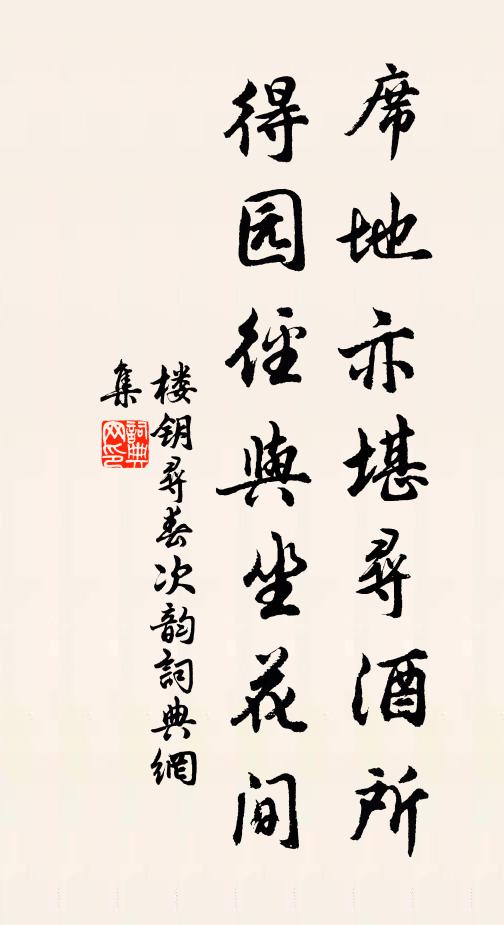 席地亦堪尋酒所
得园徑與坐花间
楼钥尋春次韵詞典網
集
詞典
网印